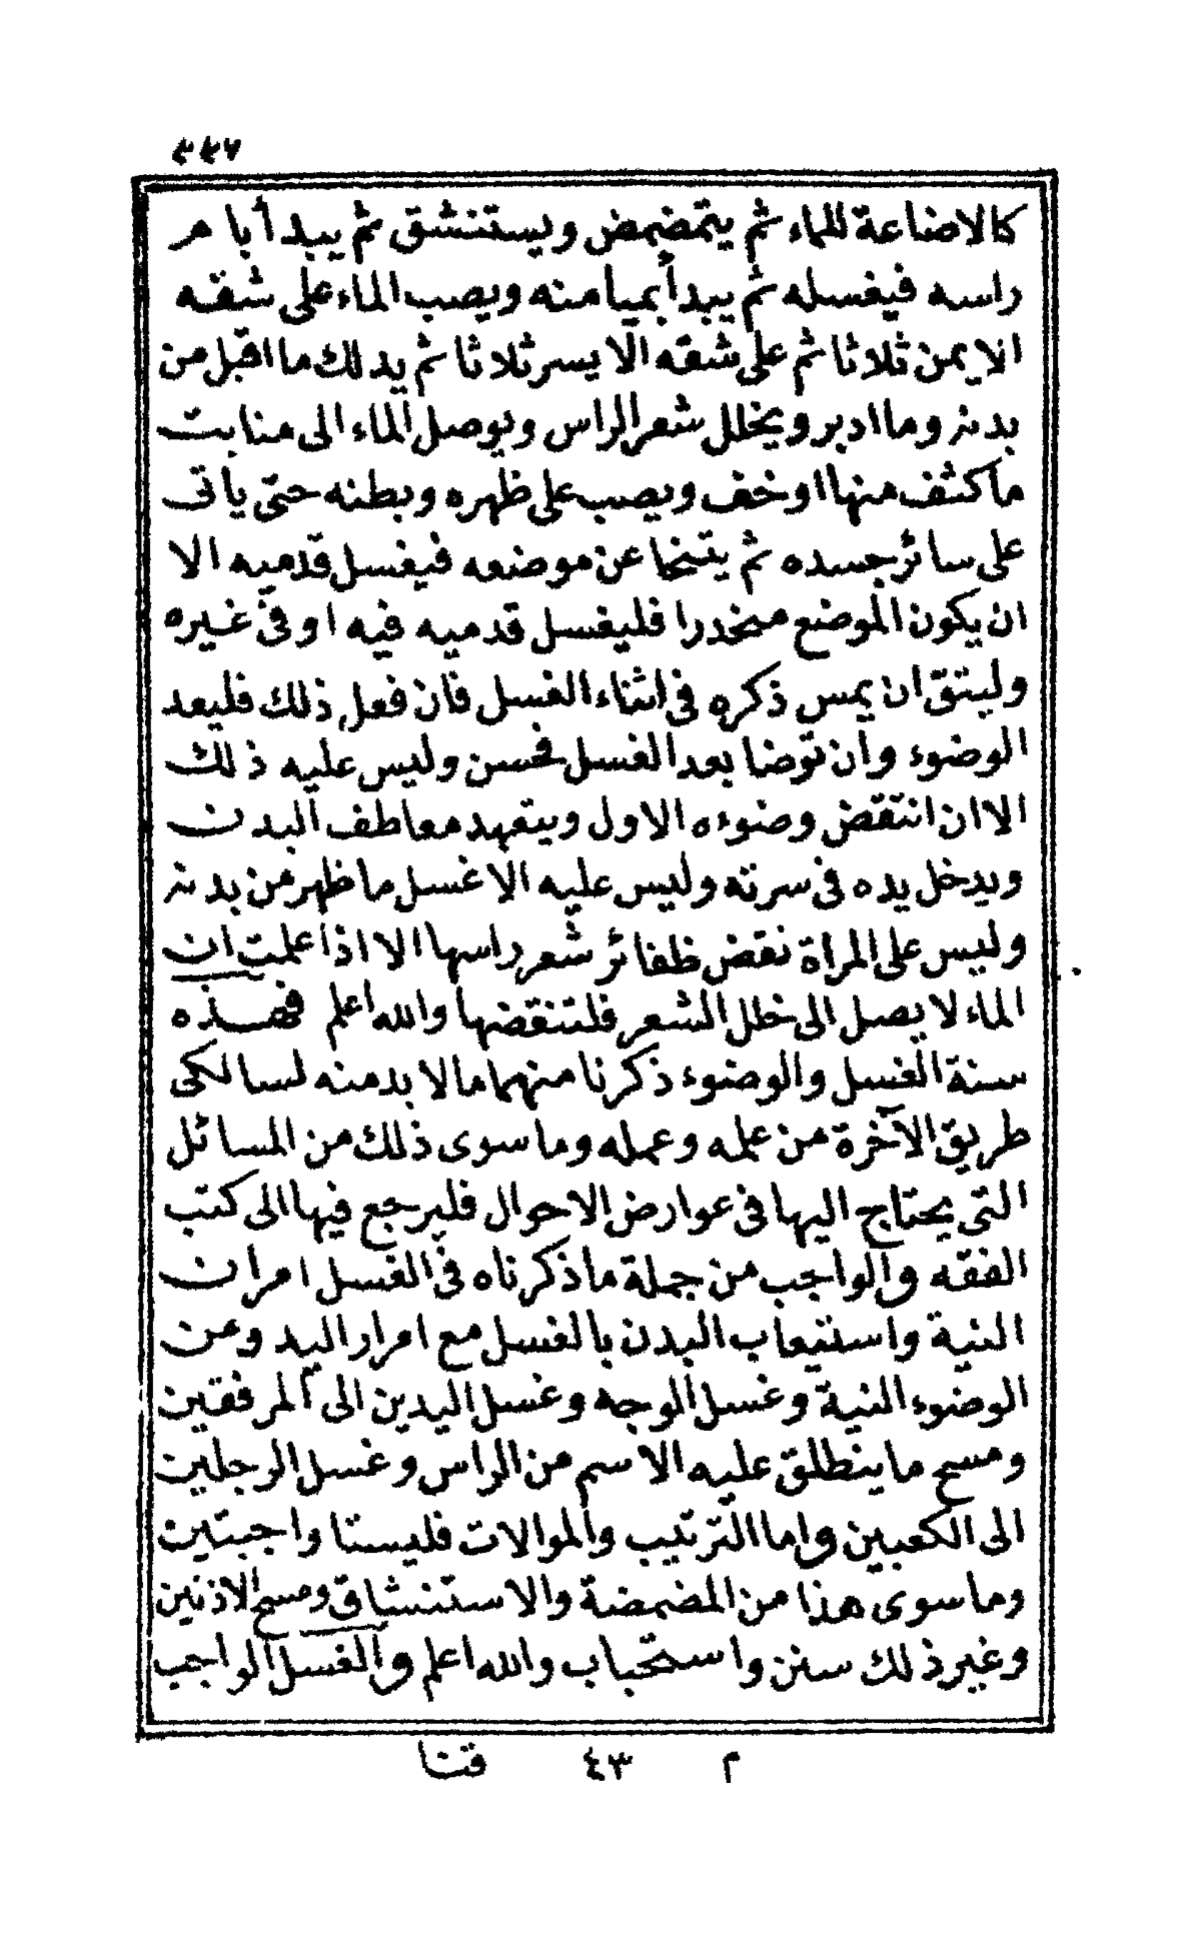 كالاضاعة للماء ثم يتمضمض ويستنشق ثم يبدأ بام
راسه فيغسله ثم يبدأ بميامنه ويصب الماء على شقه
الايمن ثلاثا ثم على شقه الايسر ثلاثا ثم يدلك ما اقبل من
بدنه وما ادبر ويخلل شعر الراس ويوصل الماء الى منابت
ماكثف منها اوخف ويصب على ظهره وبطنه حتى ياتى
على سائر جسده ثم يتنحا عن موضعه فيغسل قدميه الا
ان يكون الموضع منحدرا فليغسل قدميه فيه اوفى غيره
وليتق ان يمس ذكره فى اثناء الغسل فان فعل ذلك فليعد
الوضوء وان توضا بعد الغسل فحسن وليس عليه ذلك
الا ان انتقض وضوءه الاول ويتعهد معاطف البدن
ويدخل يده فى سرته وليس عليه الا غسل ما ظهر من بدنه
وليس على المراة نقض ظفائر شعر راسها الا اذا علمت ان
الماء لا يصل الى خلل الشعر فلتنقضها والله اعلم فهذه
سنة الغسل والوضوء ذكرنا منهما ما لا بد منه لسالكى
طريق الآخرة من علمه وعمله وما سوى ذلك من المسائل
التى يحتاج اليها فى عوارض الاحوال فليرجع فيها الى كتب
الفقه والواجب من جملة ما ذكرناه فى الغسل امران
النية واستيعاب البدن بالغسل مع امرار اليد ومن
الوضوء النية وغسل الوجه وغسل اليدين الى المرفقين
ومسح ما ينطلق عليه الاسم من الراس وغسل الرجلين
الى الكعبين واما الترتيب والموالات فليستا واجبتين
وما سوى هذا من المضمضة والاستنشاق ومسح الاذنين
وغير ذلك سنن واستحباب والله اعلم والغسل الواجب
م ٤٣ قنا